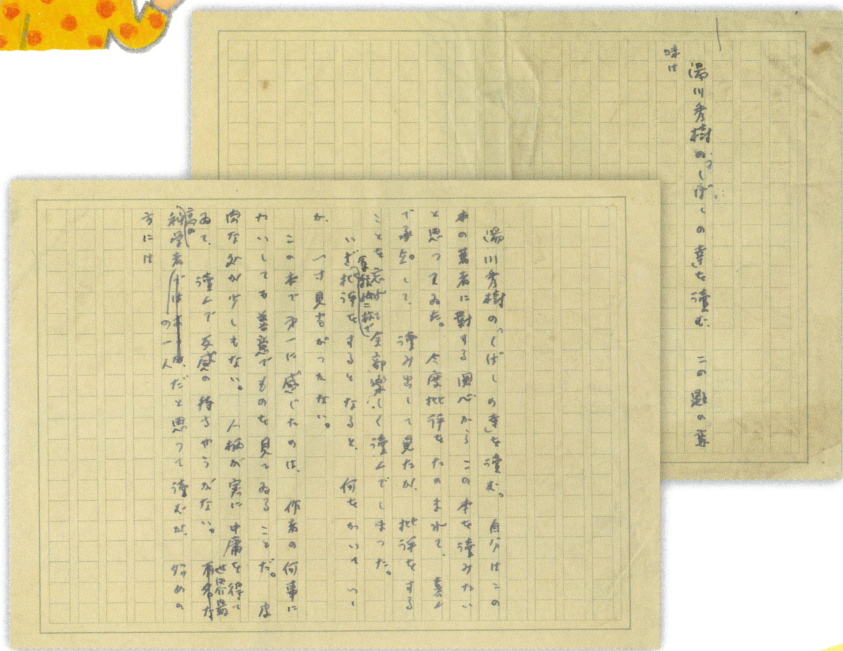 湯川秀樹の「しばしの幸」を読む この題の意
味は
湯川秀樹の「しばしの幸」を読む。自分はこの
本の著者に対する関心からこの本を読みたい
と思つてゐた。今度批評をたのまれて、喜ん
で承知して、読み出して見たが、批評をする
ことを忘れて全部楽しく読んでしまつた。
いざ批評をするとなると、何をかいていい
か、一寸見当がつかない。
この本で第一に感じたのは、作者の何事に
たいしても善意でものを見てゐることだ。皮
肉な処が少しもない。人柄が実に中庸を得て
ゐて、読んで反感の持ちやうがない。有名な
世界最
高の
科学者の一人だと思つて読むが、始めの
方には